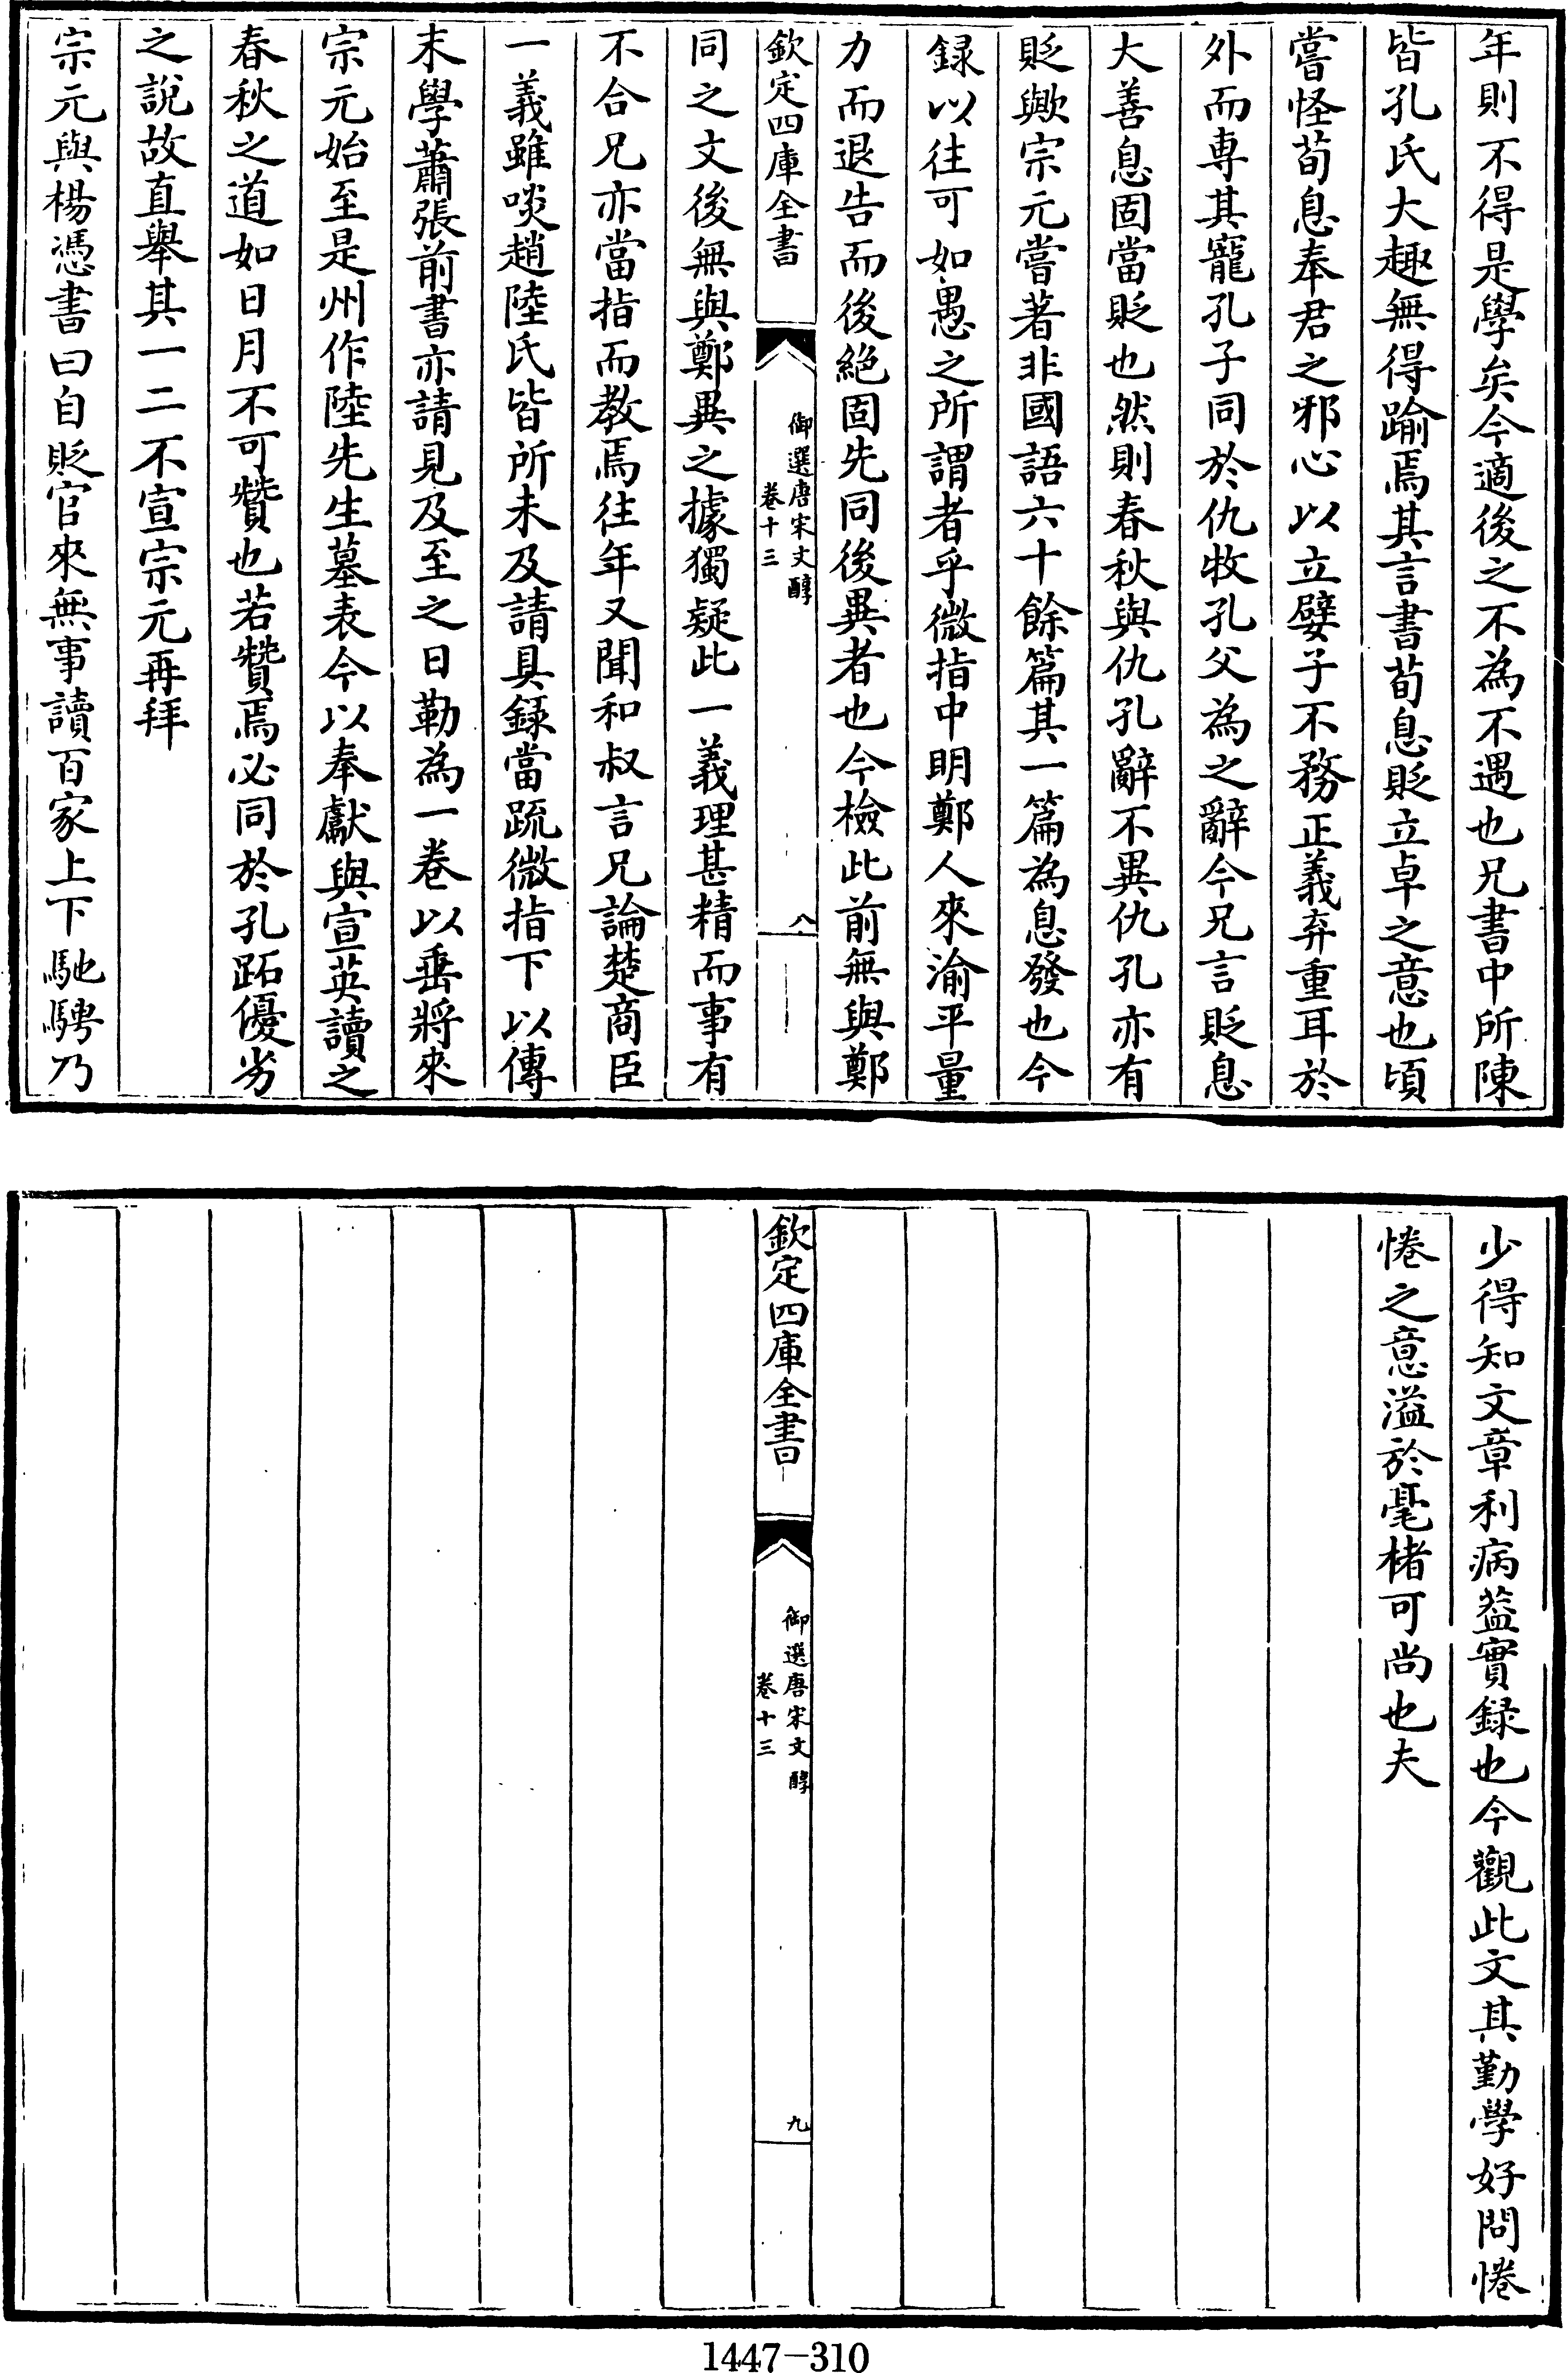 年則不得是學矣今適後之不為不遇也兄書中所陳
皆孔氏大趣無得踰焉其言書荀息貶立卓之意也頃
嘗怪荀息奉君之邪心以立嬖子不務正義弃重耳於
外而専其寵孔子同於仇牧孔父為之辭今兄言貶息
大善息固當貶也然則春秋與仇孔辭不異仇孔亦有
貶歟宗元嘗著非國語六十餘篇其一篇為息發也今
録以往可如愚之所謂者乎微指中明鄭人來渝平量
力而退告而後絕固先同後異者也今檢此前無與鄭
欽定四庫全書
御選唐宋文醇
卷十三
八
同之文後無與鄭異之據獨疑此一義理甚精而事有
不合兄亦當指而教焉往年又聞和叔言兄論楚商臣
一義雖啖趙陸氏皆所未及請具録當疏微指下以傳
末學蕭張前書亦請見及至之日勒為一卷以垂將來
宗元始至是州作陸先生墓表今以奉獻與宣英讀之
春秋之道如日月不可贊也若贊焉必同於孔跖優劣
之說故直舉其一二不宣宗元再拜
宗元與楊憑書曰自貶官來無事讀百家上下馳騁乃
少得知文章利病葢實録也今觀此文其勤學好問惓
惓之意溢於毫楮可尚也夫
欽定四庫全書
御選唐宋文醇
卷十三
九
1447-310